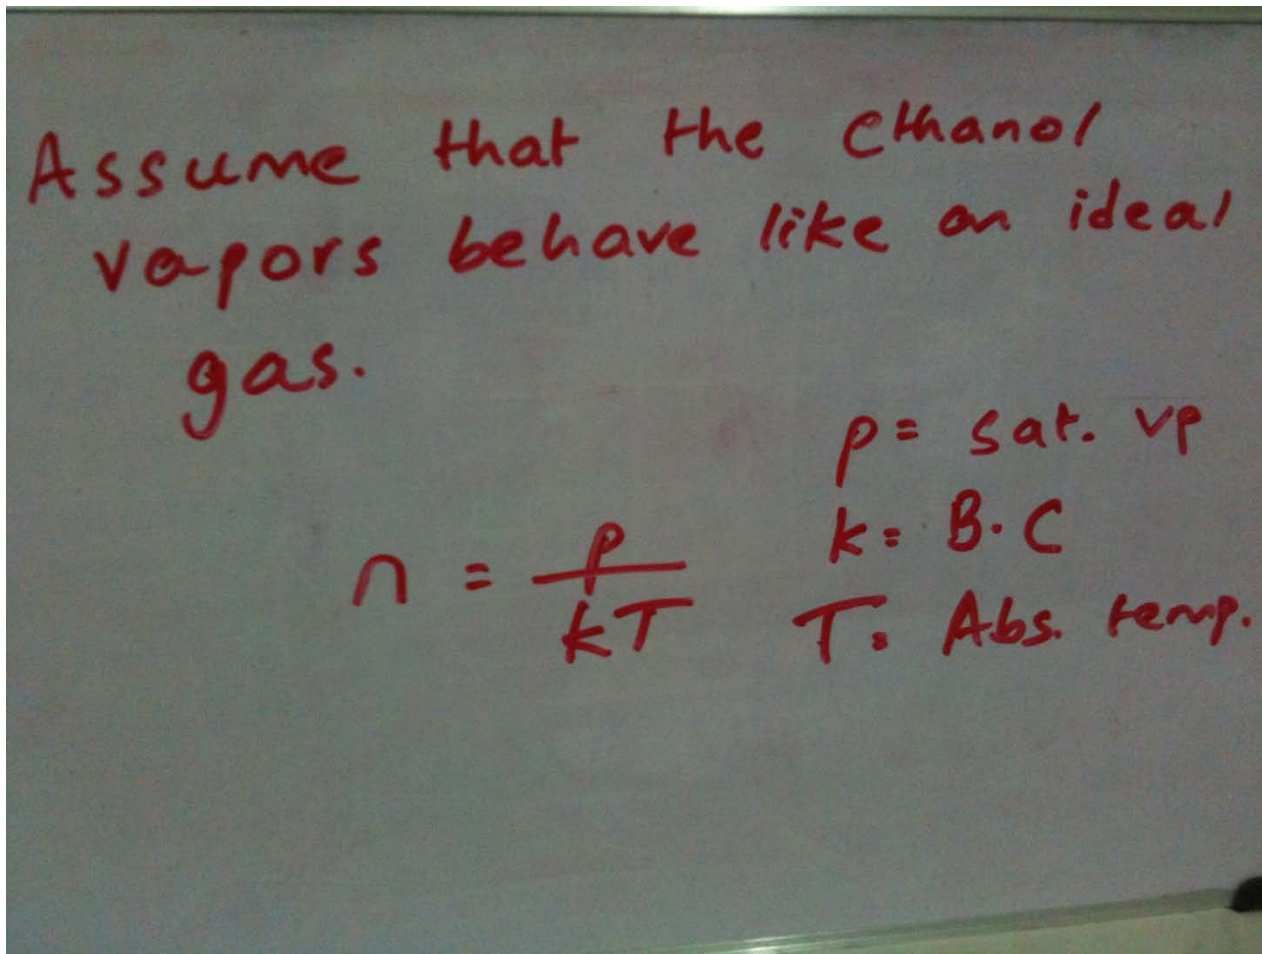 Assume that the ethanol
vapors behave like an ideal
gas.
p = sat. vp
k = B.C
n = p / kT
T = Abs. temp.